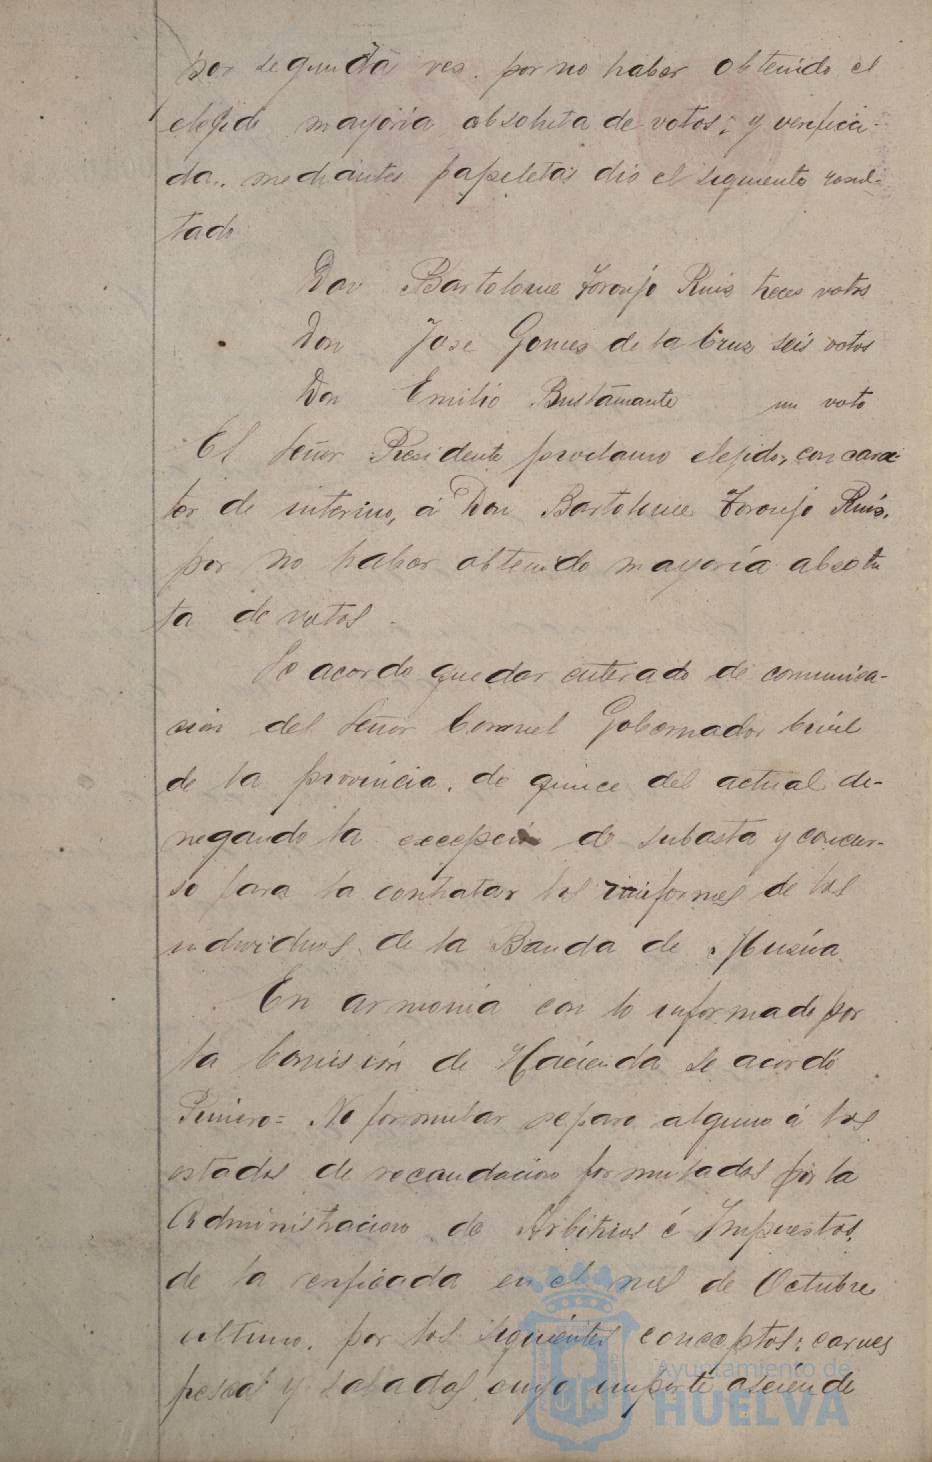 por segunda vez. por no haber obtenido el
elegido mayoria absoluta de votos; y verifica-
da. mediantes papeletas dio el siguiente resul-
tado
Don Bartolome Toronjo Ruiz trece votos
Don Jose Gomez de la Cruz seis votos
Don Emilio Bustamante un voto
El Señor Presidente proclamo elejido, con carac
ter de interino, á Don Bartolome Toronjo Ruiz.
por no haber obtenido mayoría absolu
ta de votos.
Se acordo quedar enterado de comunica-
cion del Señor Coronel Gobernador Civil
de la provincia. de quince del actual de-
negando la excepción de subasta y concur-
so para la contratar los uniformes de los
individuos de la Banda de Musica.
En armonia con lo informado por
la Comisión de Hacienda se acordó
Primero= No formular reparo alguno á los
estados de recaudacion formulados por la
Administracion de Arbitrios é Impuestos.
de la verificada en el mes de Octubre
ultimo. por los siguientes conceptos: carnes
pescas y saladas cuyo importe asciende
Ayuntamiento de
HUELVA